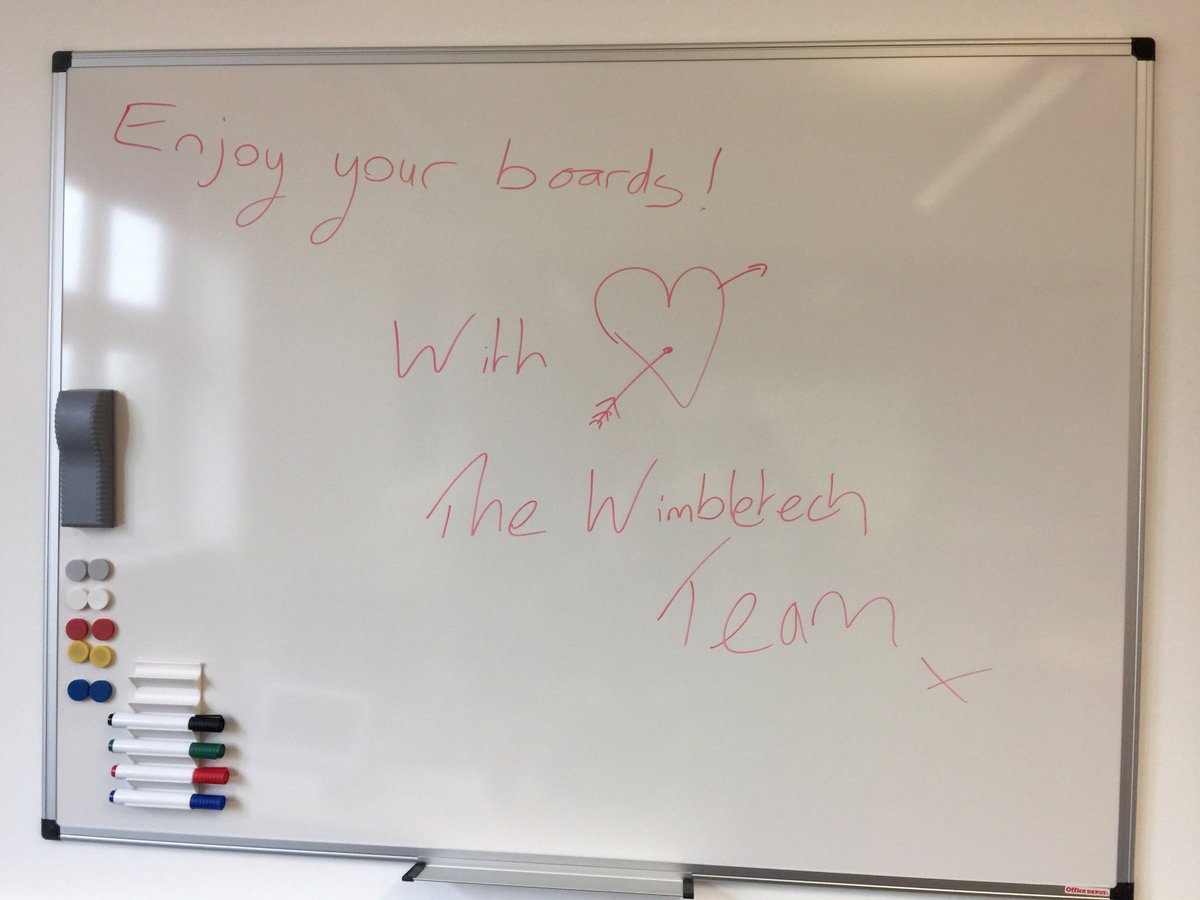 Enjoy your boards!
With
The Wimbletech
Team
x
Office DEPOT